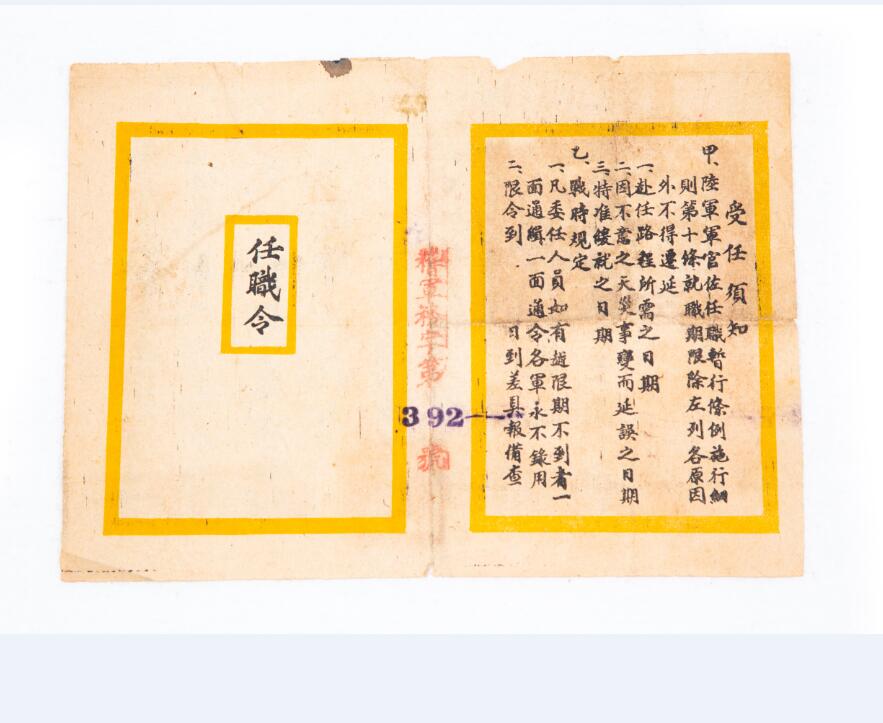 受任須知
甲、陸軍軍官佐任職暫行條例施行細
則第十條就職期限除左列各原因
外不得遷延
一、赴任路程所需之日期
二、因不意之天災事變而延誤之日期
三、特准緩就之日期
乙、戰時規定
一、凡委任人員如有逾限期不到者一
面通緝一面通令各軍永不錄用
二、限令到 . 日到差具報備查
軍務字第
392
號
任職令